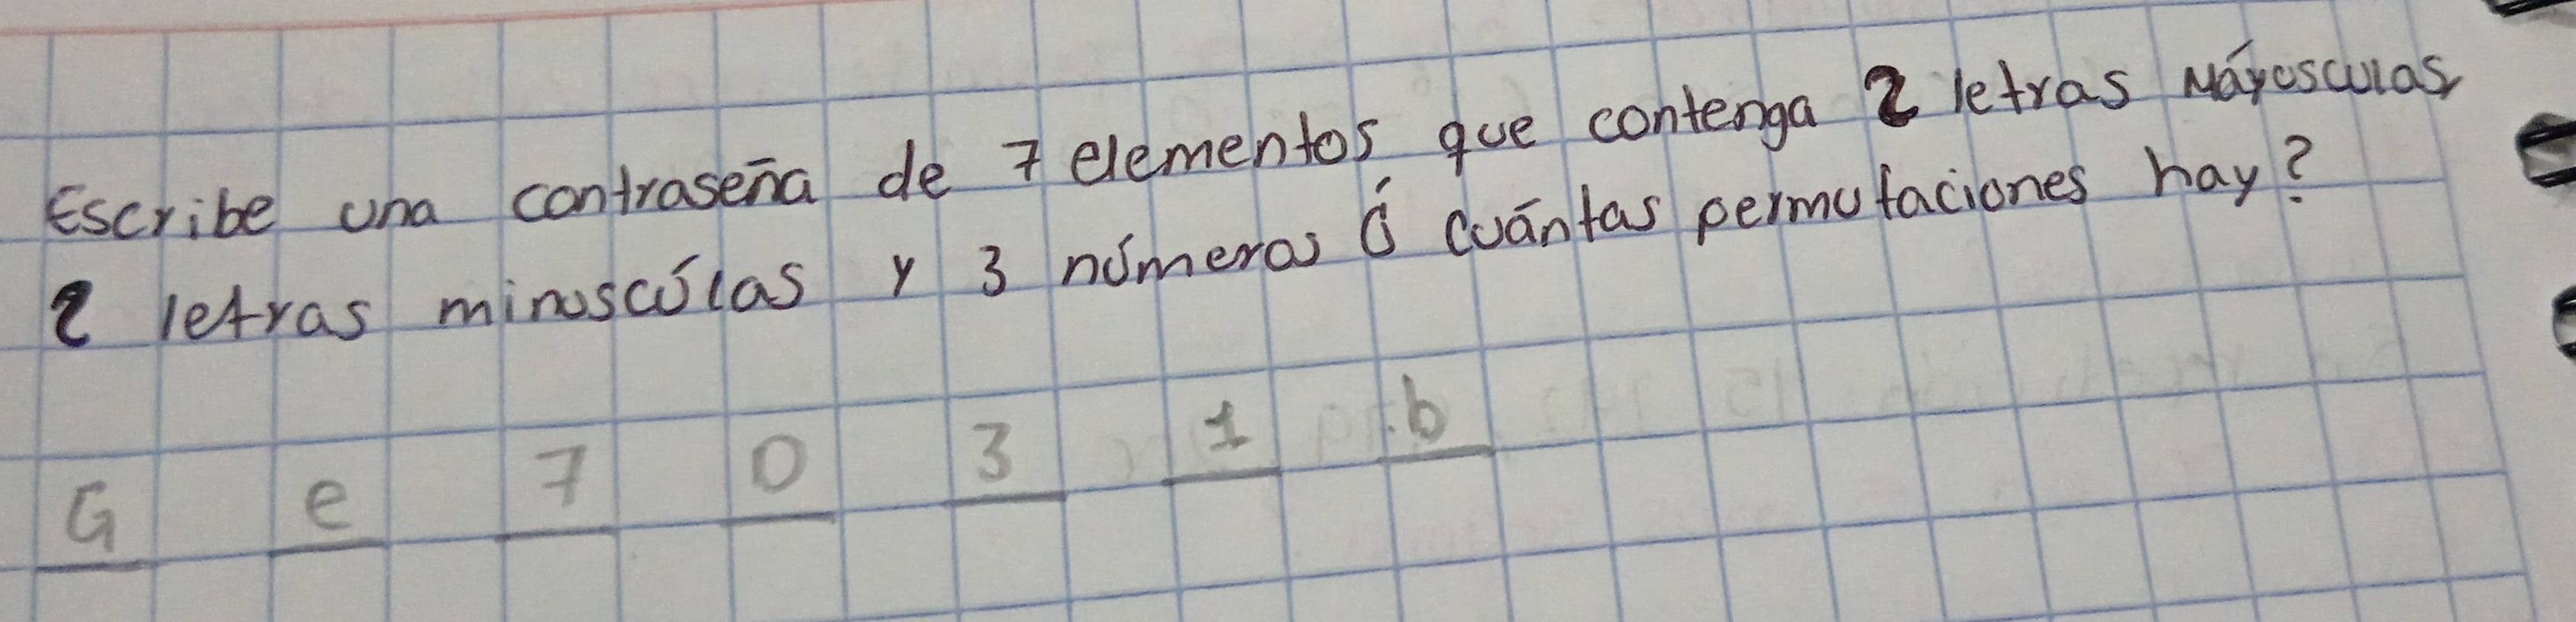 Escribe una contraseña de 7 elementos que contenga 2 letras Máyusculas
2 letras minuscúlas y 3 números ¿ cuántas permutaciones hay?
G e 7 0 3 1 b